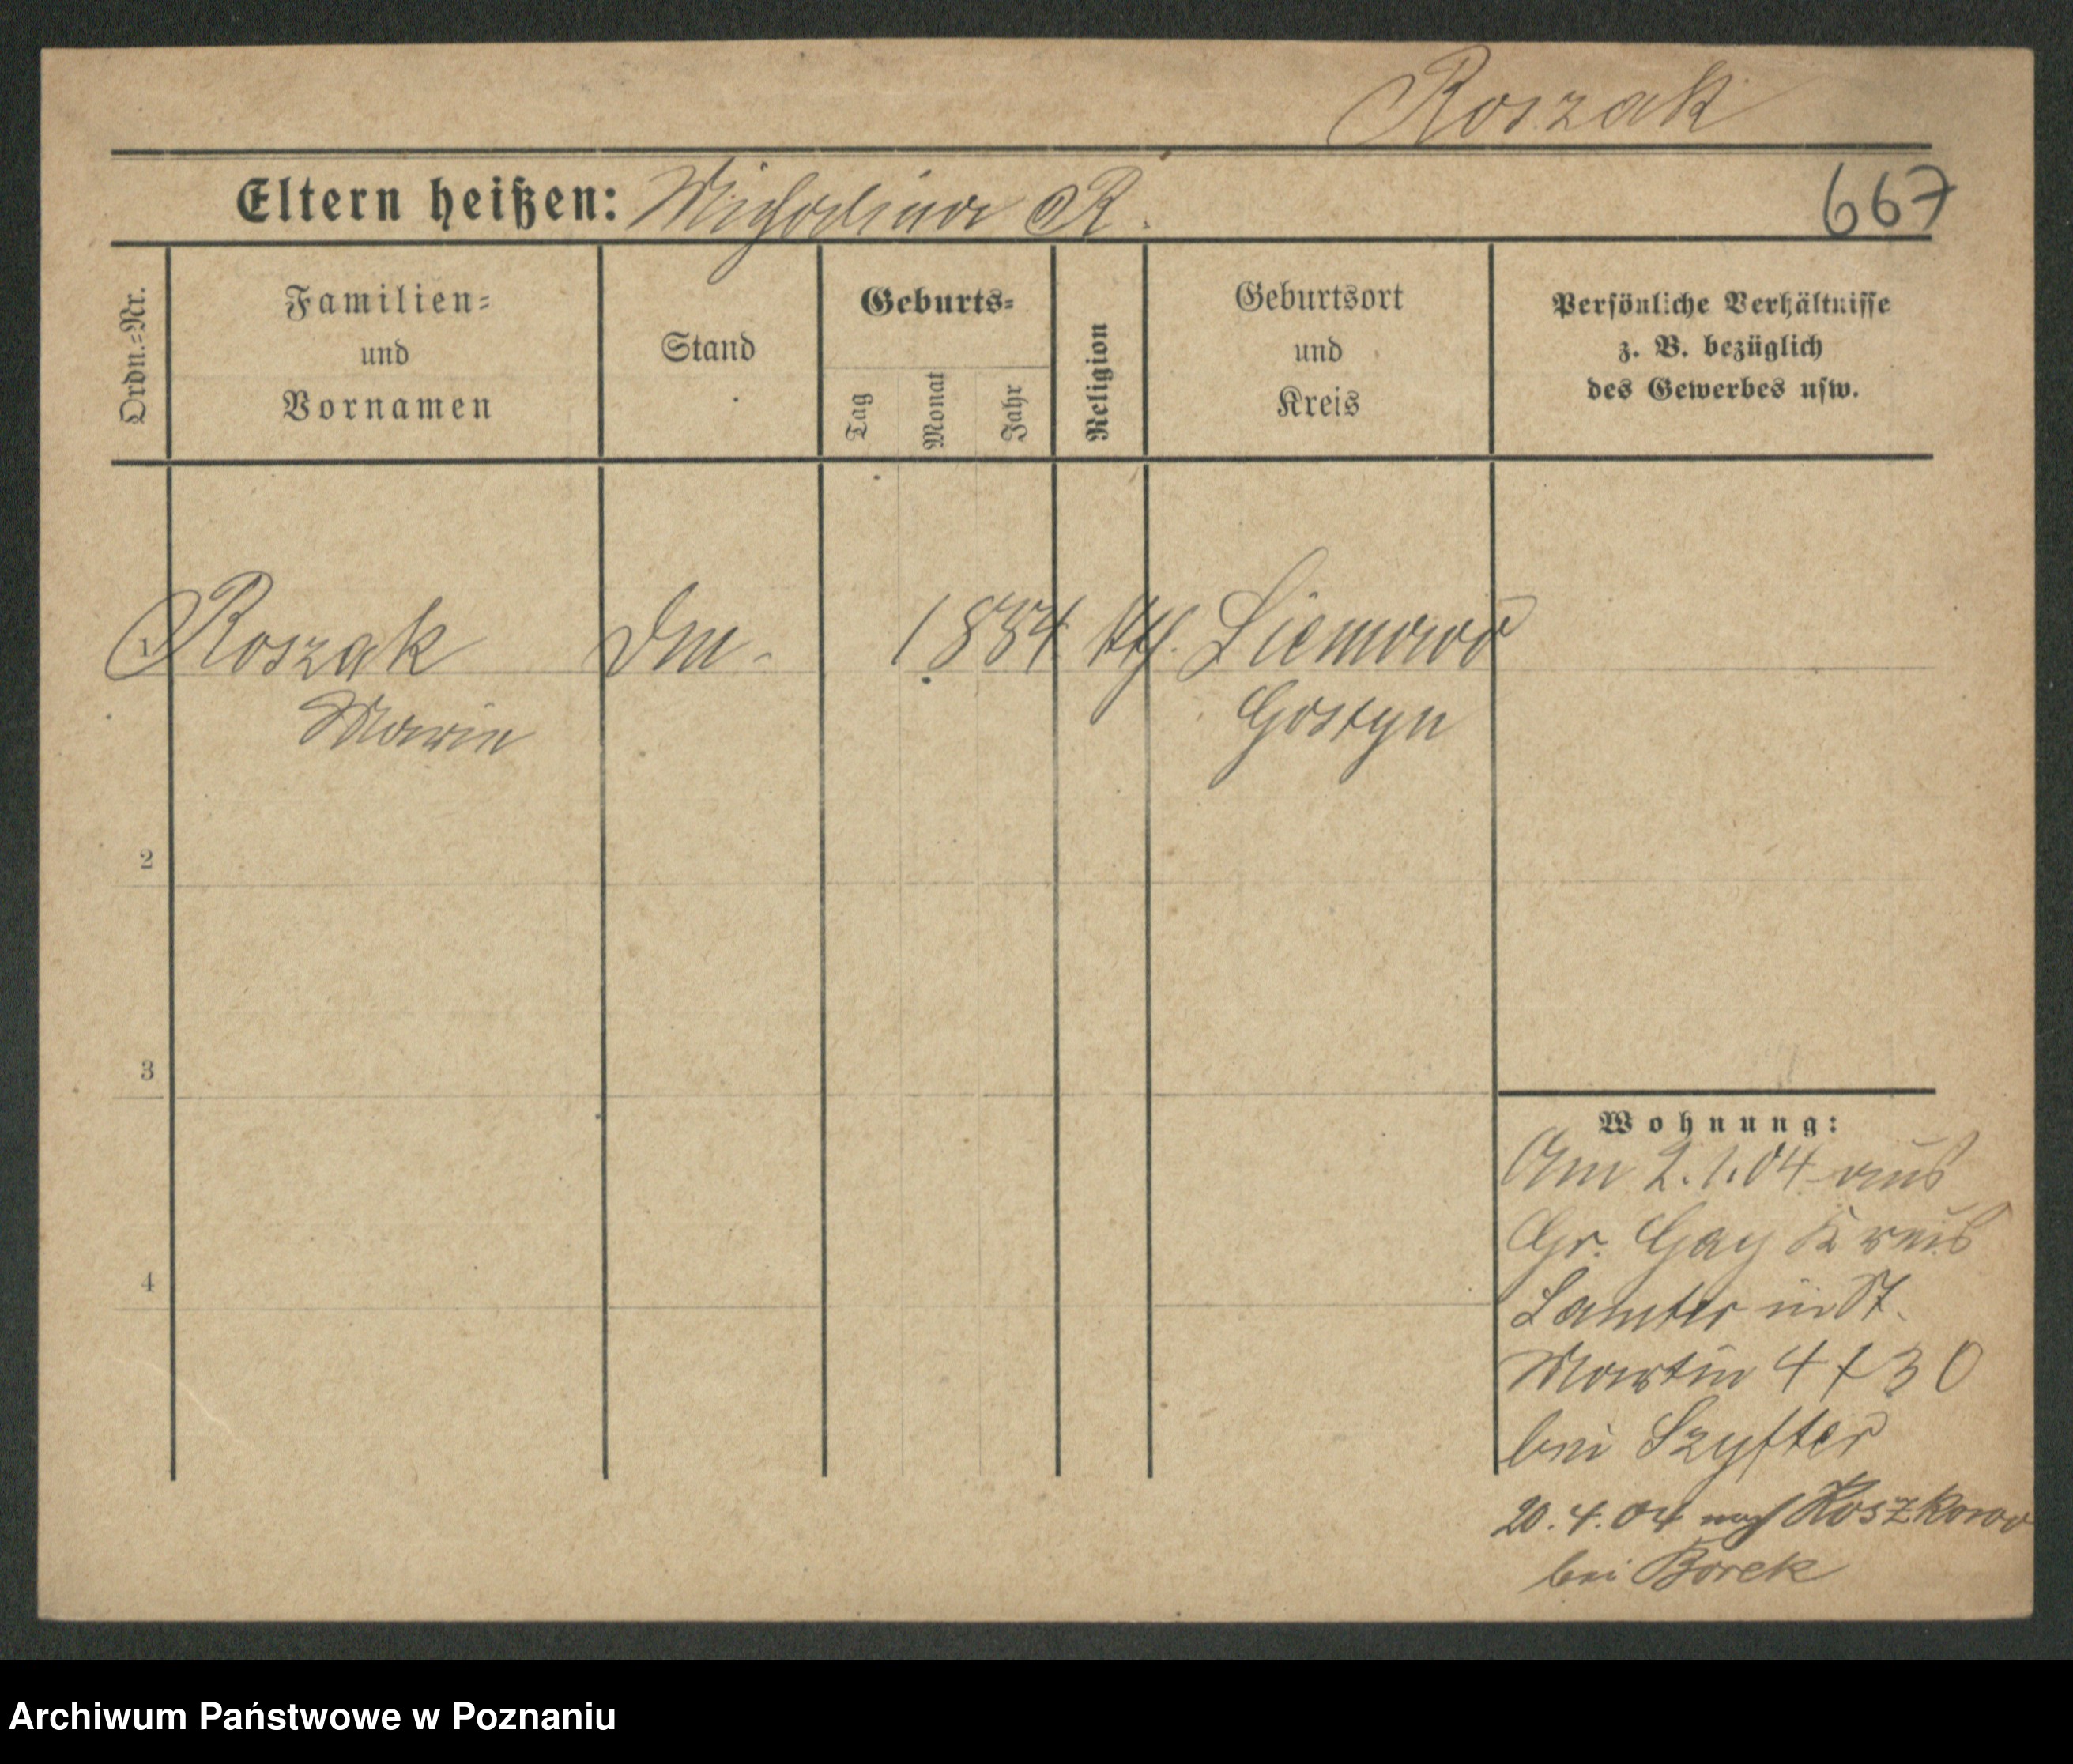 Roszak
Eltern heißen: R.
667
Ordn.=Nr.
Familien=
und
Vornamen
Stand
Geburts=
Tag
Monat
Jahr
Religion
Geburtsort
und
Kreis
Persönliche Verhältnisse
z. B. bezüglich
des Gewerbes usw.
Roszak 1884 kth. Siemowo
Marie Gostyn
2
3
4
Wohnung:
Am 2.1.04 aus
Gr. Gay Kreis
Samter in St.
Martin 47 30
bei Szyfter
20.4.04 nach Koszkowo
bei Borek
Archiwum Państwowe w Poznaniu